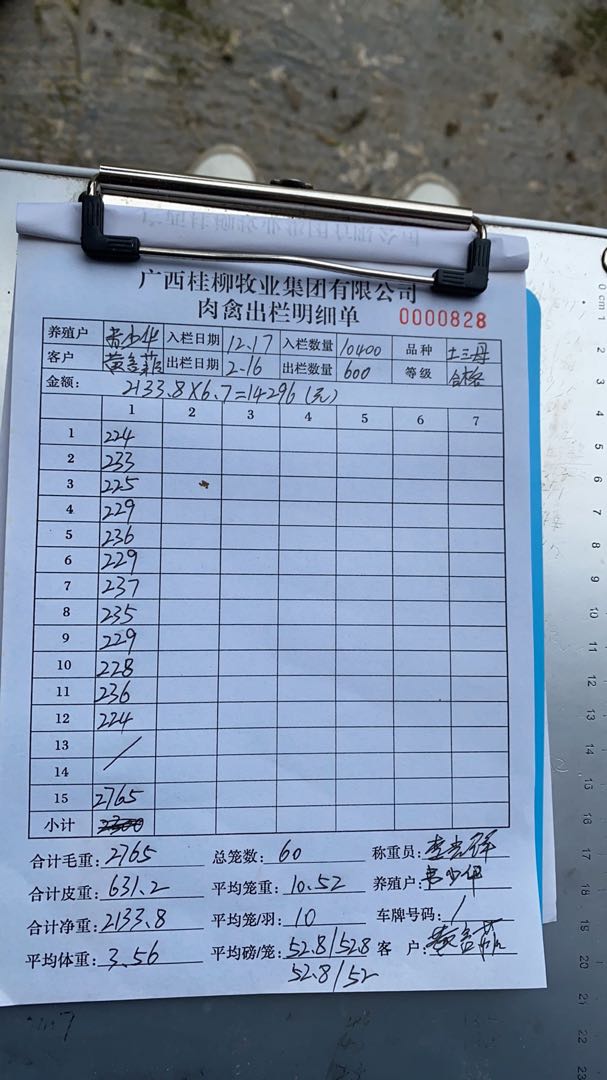 广西桂柳牧业集团有限公司
肉禽出栏明细单 0000828
养殖户 韦少华 入栏日期 12.17 入栏数量 10400 品种 土三母
客户 出栏日期 2.16 出栏数量 600 等级 合格
金额: 2133.8×6.7=14296(元)
1 2 3 4 5 6 7
1 224
2 233
3 225
4 229
5 236
6 229
7 237
8 235
9 229
10 228
11 236
12 224
13 /
14
15 2765
小计
合计毛重: 2765 总笼数: 60 称重员:
合计皮重: 631.2 平均笼重: 10.52 养殖户: 韦少华
合计净重: 2133.8 平均笼/羽: 10 车牌号码: /
平均体重: 3.56 平均磅/笼: 52.8/52.8 客 户:
52.8/52
0 cm 1
2
3
4
5
6
7
8
9
10
11
12
13
14
15
16
17
18
19
20
21
22
23